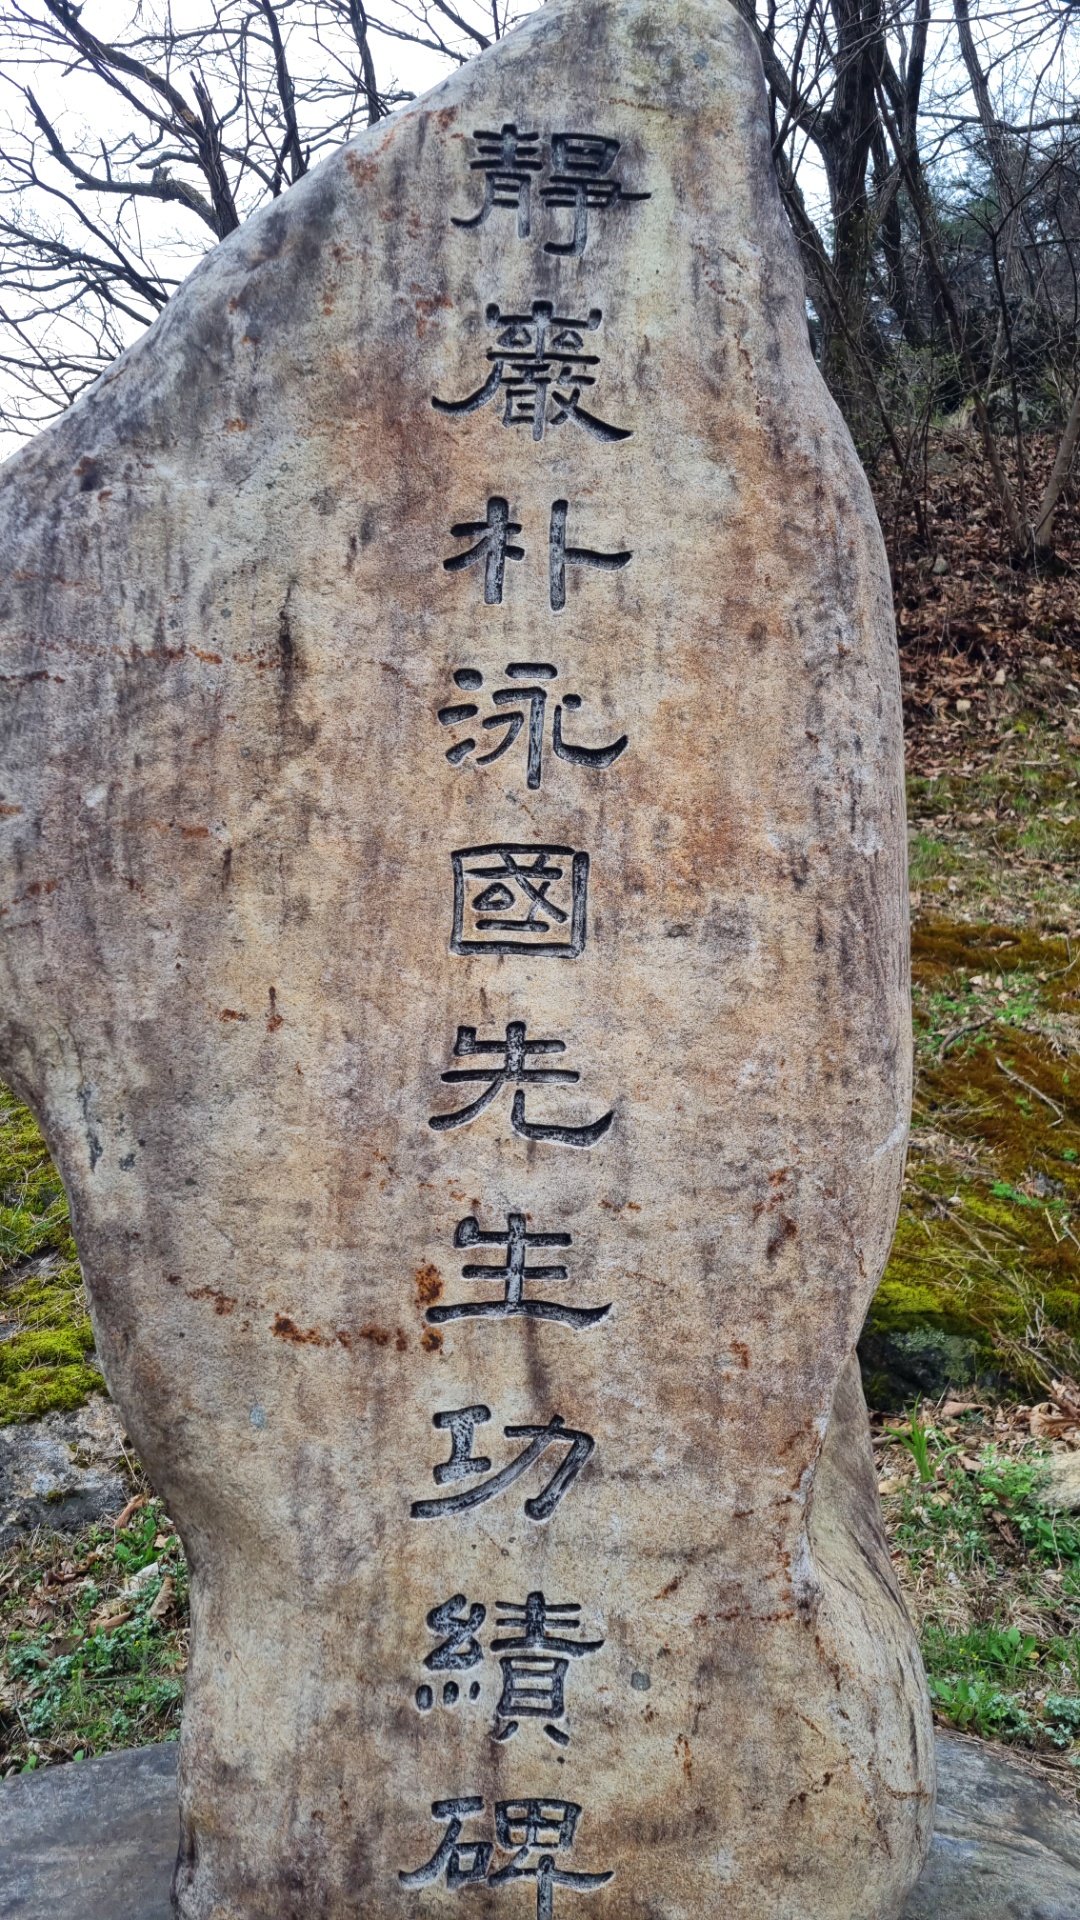 靜巖朴泳國先生功績碑